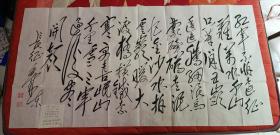 红军不怕远征
难万水千山
只等闲五岭
逶迤腾细浪
乌蒙磅礴走泥
丸金沙水拍
云崖暖大
渡桥横铁索
寒更喜岷山
千里雪三军
过后尽
开颜
长征 毛泽东